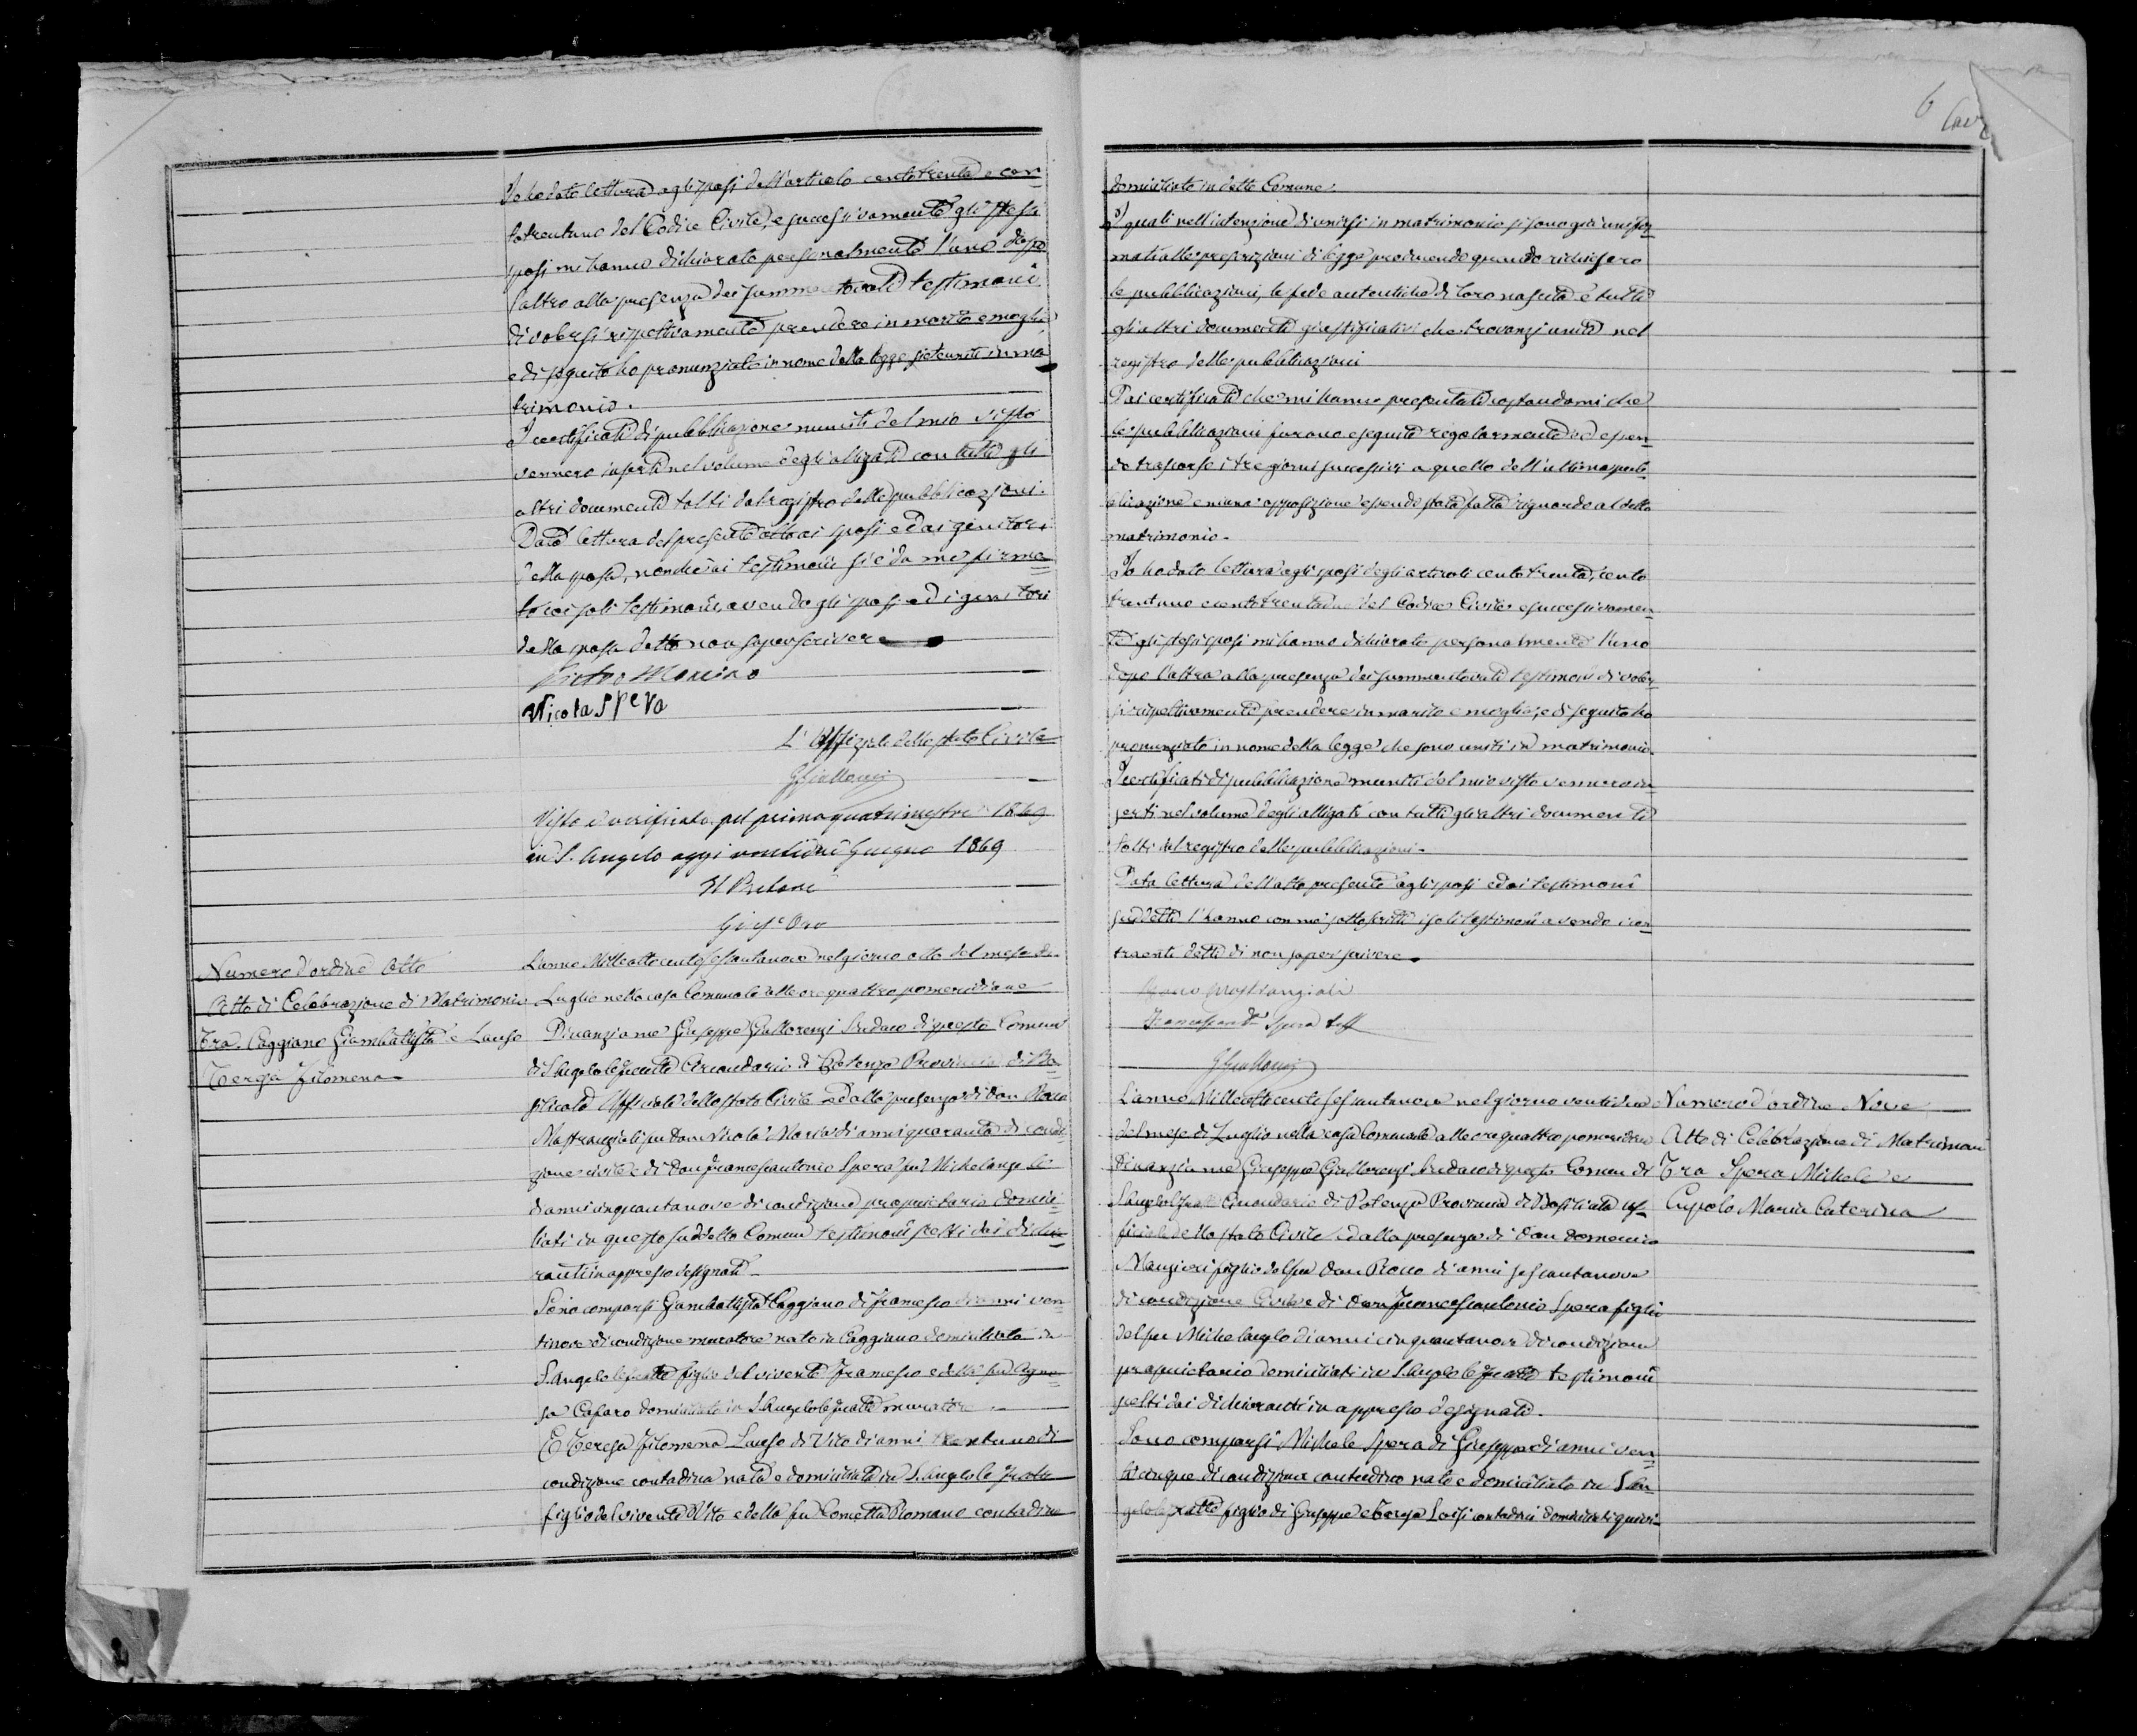 Io ho dato lettura agli sposi dell'articolo centotrenta e cen=
totrentuno del Codice Civile, e successivamente gli stessi
sposi mi hanno dichiarato personalmente l'uno dopo
l'altro alla presenza dei summentovati testimoni
di volersi rispettivamente prendere in marito e moglie
e di seguito ho pronunziato in nome della legge siete uniti in ma
trimonio.
I certificati di pubblicazione muniti del mio visto
vennero inserti nel volume degli alligati con tutti gli
altri documenti tolti dal registro delle pubblicazioni.
Data lettura del presente atto ai sposi e dai genitori
della sposa, nonche ai testimoni si è da me firma=
to coi soli testimoni, avendo gli sposi ed i genitori
della sposa detto non saper scrivere
Pietro Mancino
Nicola Spera
L'Uffiziale dello stato Civile
G Gallorenzi
Visto e verificato pel primo quatrimestre 1869
in S. Angelo oggi Giugno 1869
Il Pretore
Gius.e Oro
Numero d'ordine Otto
Atto di Celebrazione di Matrimonio
Tra Caggiano Giambattista e Lauso
Teresa Filomena
L'anno Milleottocentosessantanove nel giorno otto del mese di
Luglio nella casa Comunale alle ore quattro pomeridiane
Dinanzi a me Giuseppe Gallorenzi Sindaco di questo Comune
di S. Angelo le fratte Circondario di Potenza Provincia di Ba
silicata Officiale dello stato Civile ed alla presenza di Don Rocco
Mastrangioli fu Don Nicola Maria di anni quaranta di condi
zione civile e di Don Francescantonio Spera fu Michelangelo
d'anni cinquantanove di condizione proprietario domici
liati in questo suddetto Comune testimoni scelti dai dichia=
ranti in appresso designati
Sono comparsi Giambattista Caggiano di Francesco di anni ven=
tinove di condizione muratore nato in Caggiano domiciliato in
S. Angelo le fratte figlio del vivente Francesco e della fu Agne=
sa Cafaro domiciliato in S. Angelo le fratte muratore
E Teresa Filomena Lauso di Vito di anni trentuno di
condizione contadina nata e domiciliata in S. Angelo le fratte
figlia del vivente Vito e della fu Cometta Romano contadina
6
domiciliato in detto Comune.
I quali nell'intenzione di unirsi in matrimonio si sono già unifor=
mati alle prescrizioni di legge producendo quando richiesero
le pubblicazioni, le fede autentiche di loro nascita e tutti
gli altri documenti giustificativi che trovanzi uniti nel
registro delle pubblicazioni
Dai certificati che mi hanno presentati costandomi che
le pubblicazioni furono eseguite regolarmente ed essen=
do trascorse i tre giorni successivi a quello dell'ultima pub=
blicazione e niuna opposizione essendo stata fatta riguardo al detto
matrimonio.
Io ho dato lettura agli sposi degli articoli cento trenta, cento
trentuno e centotrentadue del Codice Civile e successivamen=
te gli stessi sposi mi hanno dichiarato personalmente l'uno
dopo l'altra alla presenza dei summentovati testimoni di voler=
si rispettivamente prendere in marito e moglie, e di seguito ho
pronunziato in nome della legge che sono uniti in matrimonio.
I certificati di pubblicazione muniti del mio visto vennero in=
serti nel volume degli alligati con tutti gli altri documenti
tolti dal registro delle pubblicazioni.
Data lettura dell'atto presente agli sposi ed ai testimoni
suddetti l'hanno con me sottoscritti i soli testimoni avendo i con=
traenti detti di non saper scrivere.
Rocco Mastrangioli
Francescant.o Spera
G Gallorenzi
L'anno Milleottocentosessantanove nel giorno ventidue
del mese di Luglio nella casa Comunale alle ore quattro pomeridiane
Dinanzi a me Giuseppe Gallorenzi Sindaco di questo Comune di
S. Angelo le fratte Circondario di Potenza Provincia di Basilicata Uf=
ficiale dello stato Civile ed alla presenza di Don Domenico
Mangieri figlio del fu Don Rocco di anni sessantanove
di condizione Civile e di Don Francescantonio Spera figlio
del fu Michelangelo di anni cinquantanove di condizione
proprietario domiciliati in S. Angelo le fratte testimoni
scelti dai dichiaranti in appresso designati.
Sono comparsi Michele Spera di Giuseppe di anni ven=
ticinque di condizione contadino nato e domiciliato in S. An=
gelo le fratte figlio di Giuseppe e Teresa Loisi contadini domiciliati quivi
Numero d'ordine Nove
Atto di Celebrazione di Matrimoni
Tra Spera Michele e
Cupolo Maria Caterina